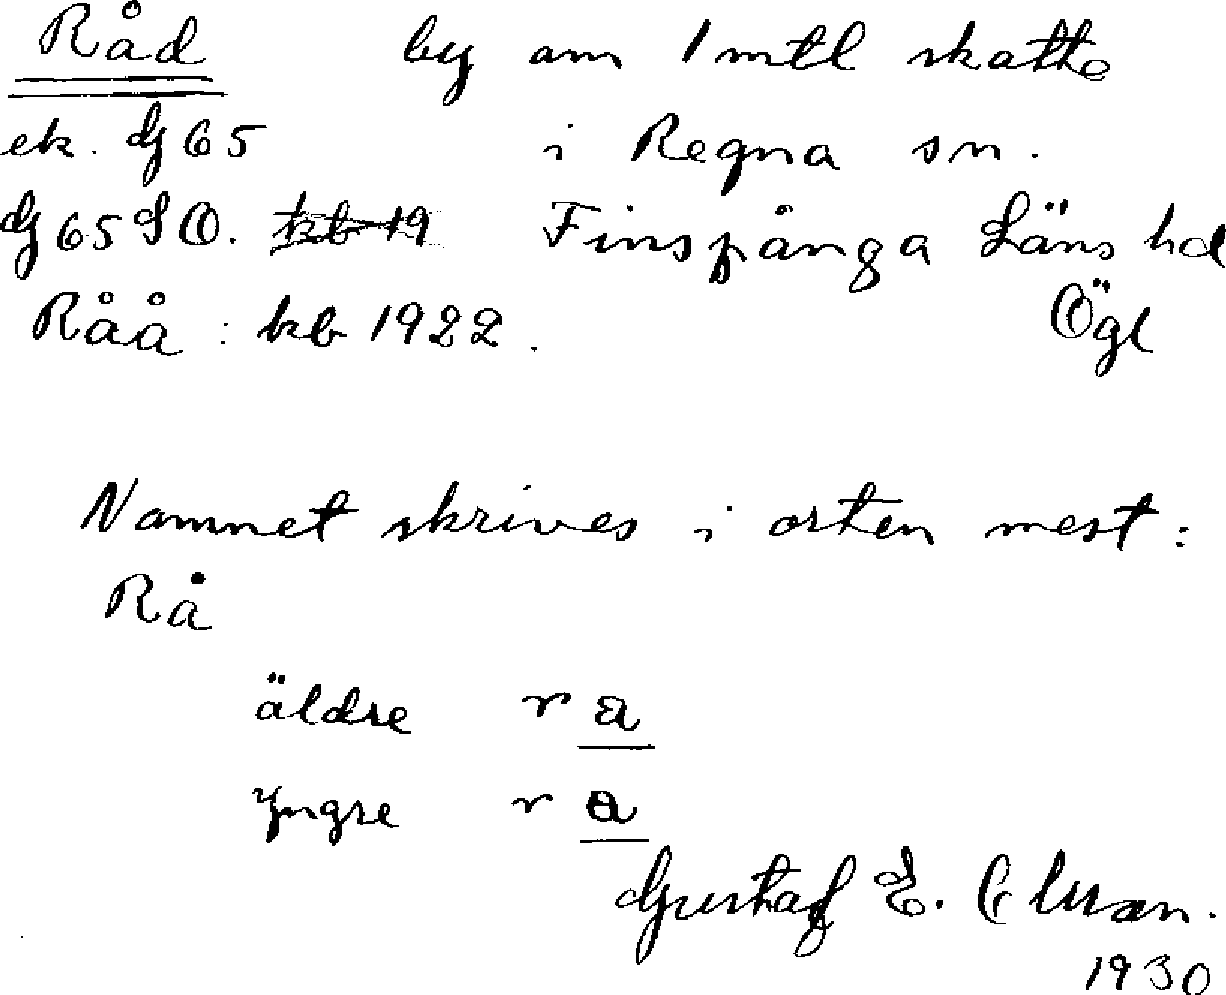 Råd by om 1 mtl skatte
ek. Gj 65 i Regna sn.
Gj 65 SO. kb 19 Finspånga Läns hd
Råå : kb 1922. Ögl
Namnet skrives i orten mest :
Rå
äldre r a
yngre r a
Gustaf E.
1930